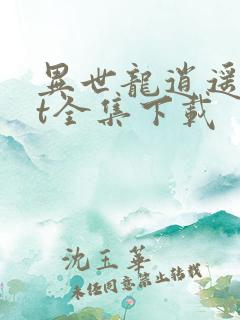 異世龍逍遥
t全集下載
沈玉華
未经同意禁止转载